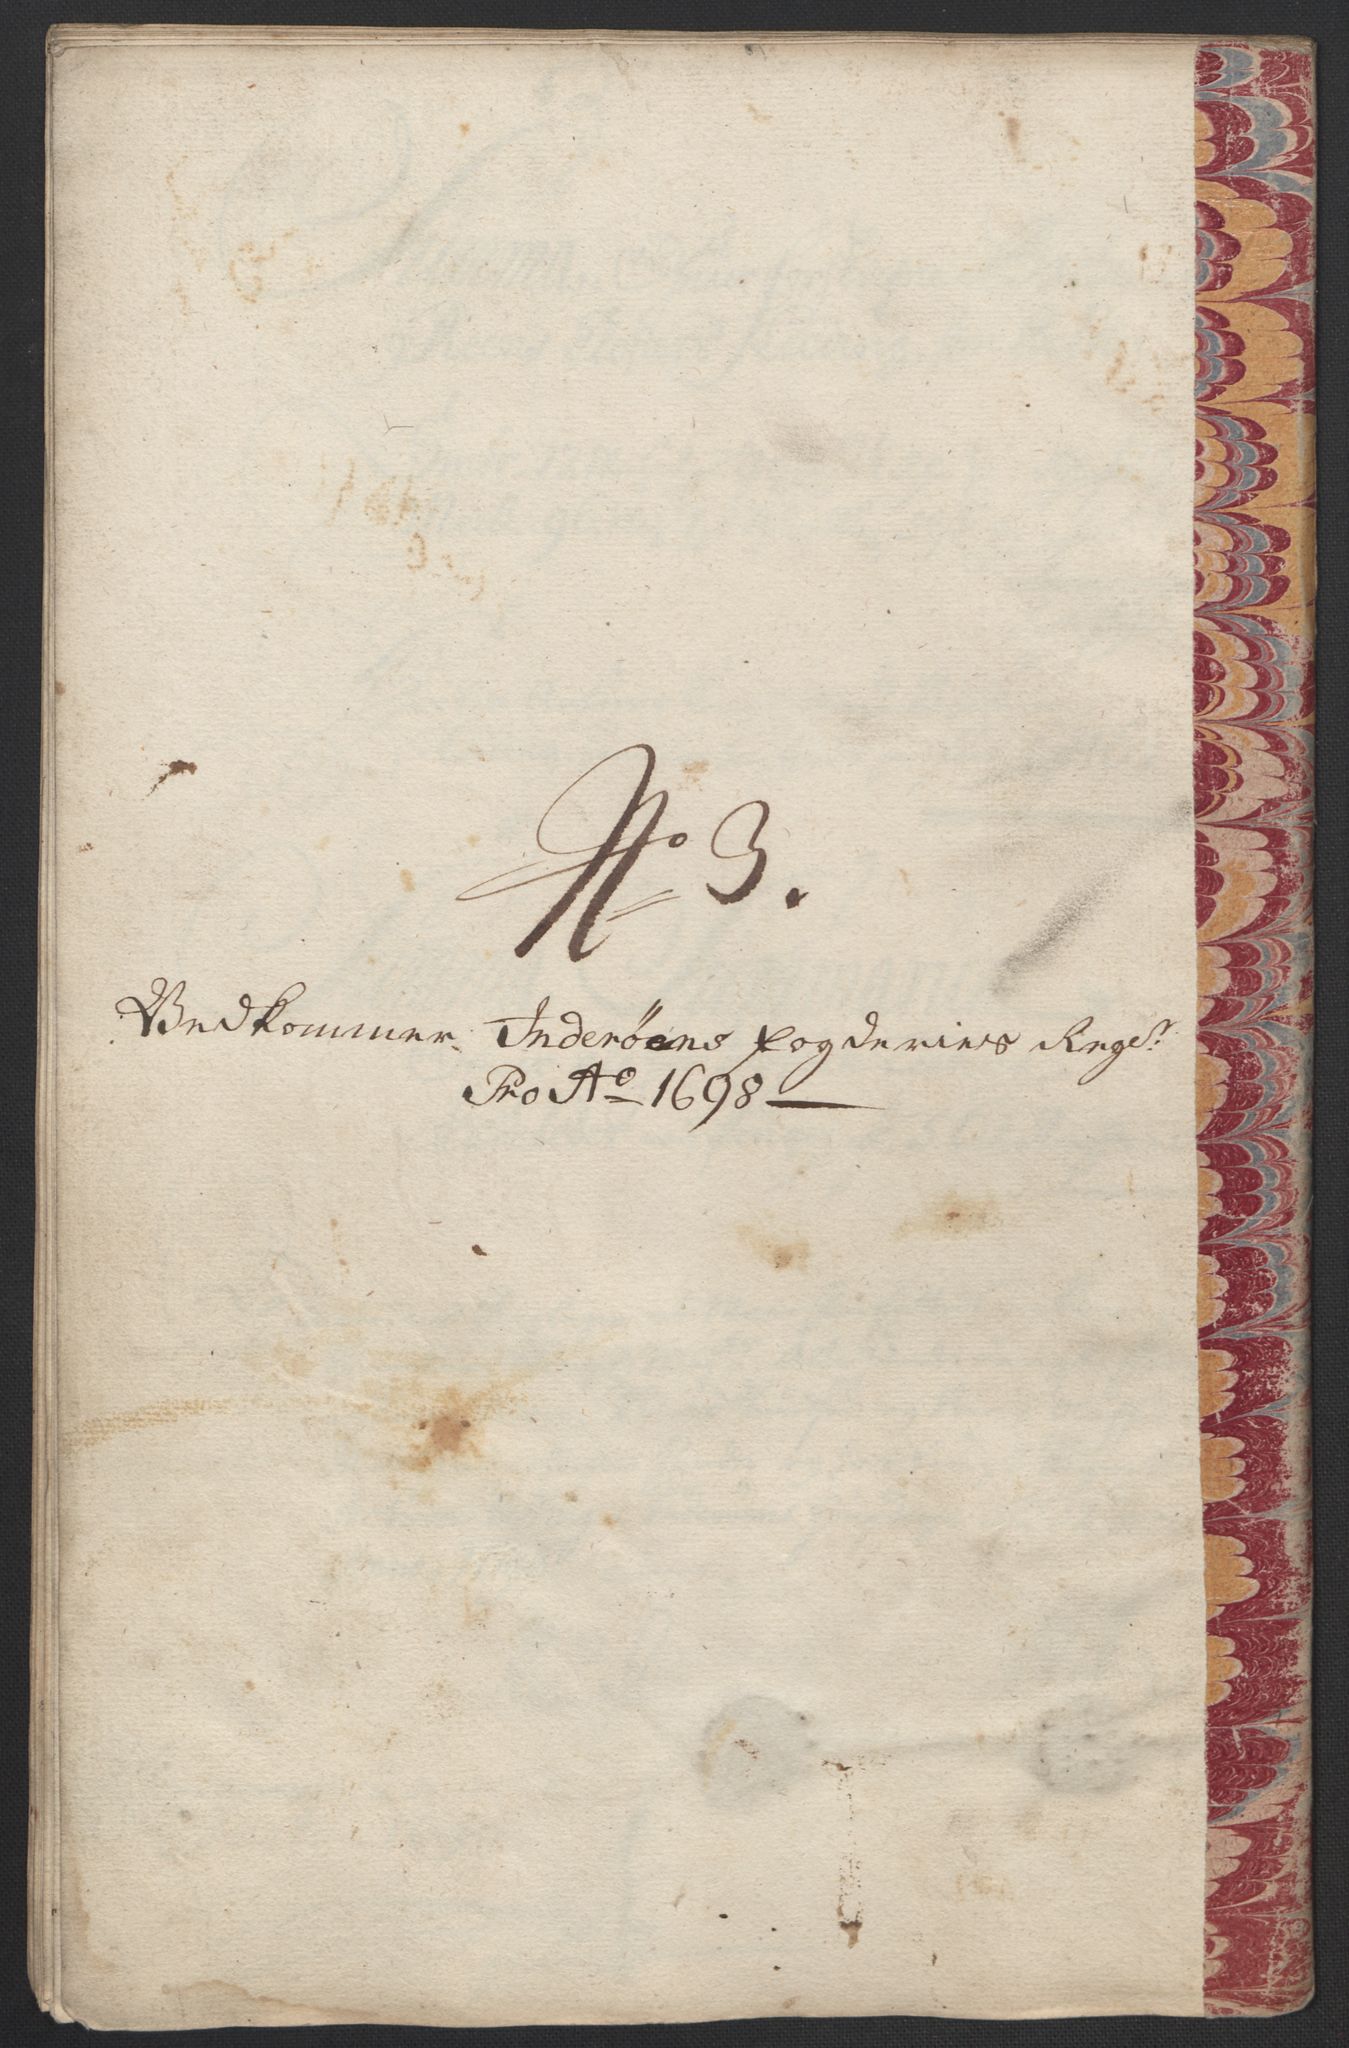 No 3.
Vedkommer Inderöens fogderies Regs:r
Pro Ao 1698